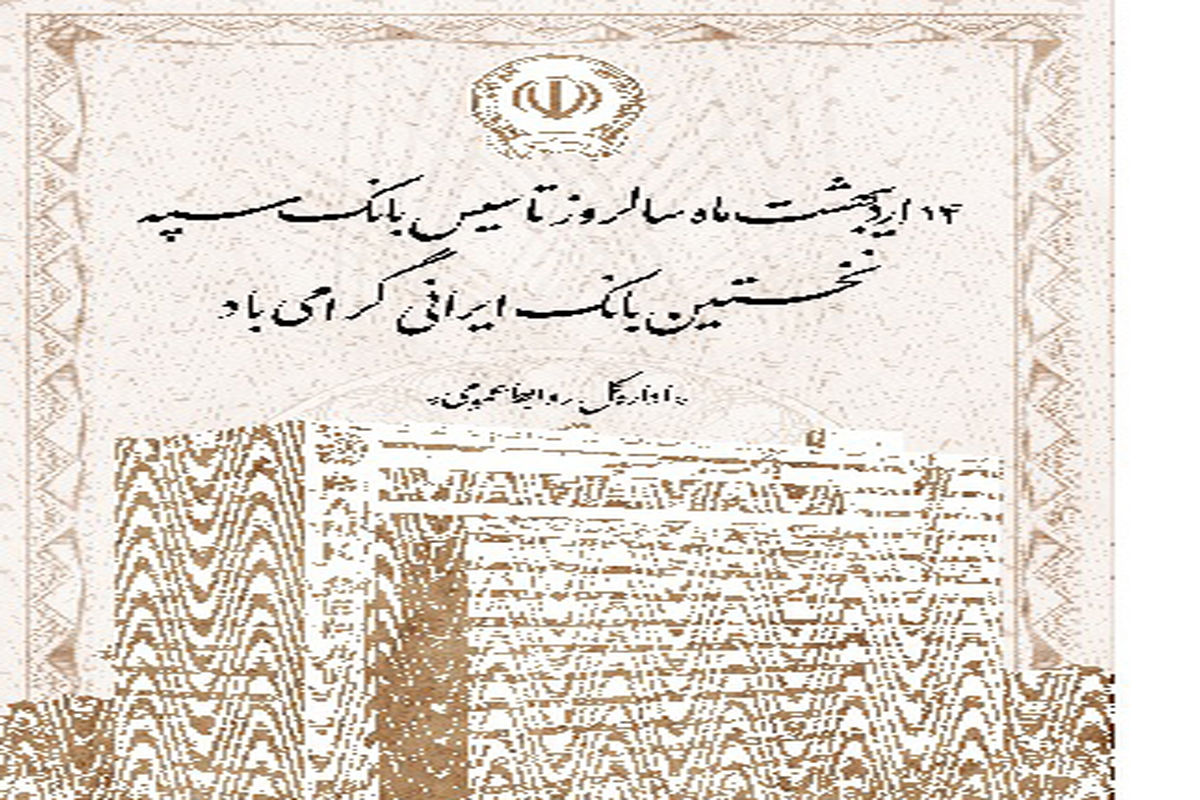 ۱۴ اردیبهشت ماه سالروز تاسیس بانک سپه
نخستین بانک ایرانی گرامی باد
اداره کل روابط عمومی